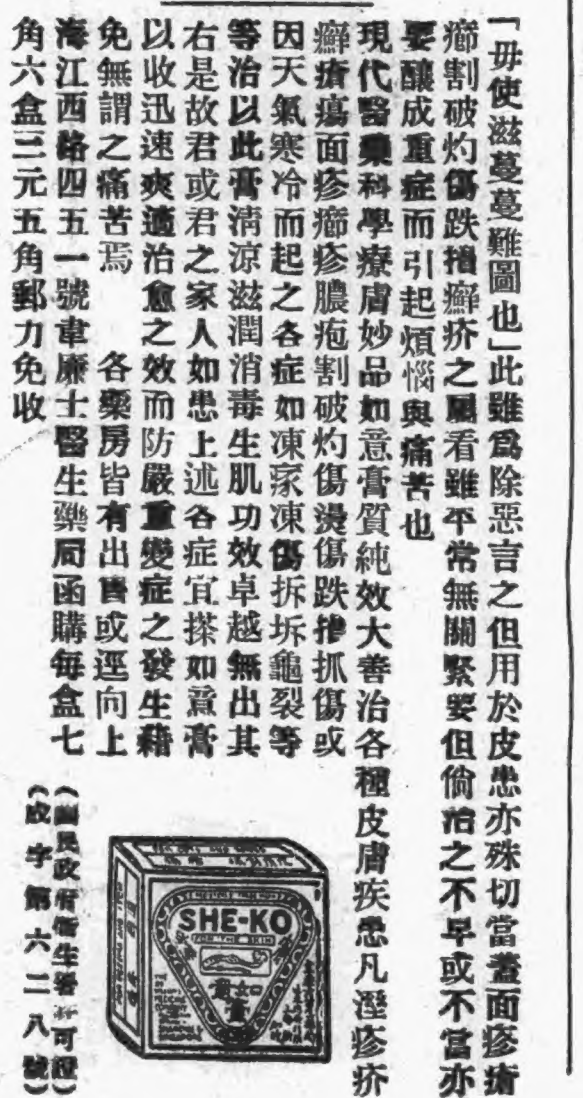 「毋使滋蔓蔓難圖也」此雖爲除惡言之但用於皮患亦殊切當蓋面疹瘡
癤割破灼傷跌損癬疥之屬看雖平常無關緊要但倘治之不早或不當亦
要釀成重症而引起煩惱與痛苦也
現代醫藥科學療膚妙品如意膏質純效大善治各種皮膚疾患凡溼疹疥
癬瘡瘍面疹癤疹膿疱割破灼傷燙傷跌撞抓傷或
因天氣寒冷而起之各症如凍瘃凍傷拆坼龜裂等
等治以此膏清涼滋潤消毒生肌功效卓越無出其
右是故君或君之家人如患上述各症宜搽如意膏
以收迅速爽適治愈之效而防嚴重變症之發生藉
免無謂之痛苦焉 各藥房皆有出售或逕向上
海江西路四五一號韋廉士醫生藥局函購每盒七
角六盒三元五角郵力免收
(國民政府衛生署許可證)
(成字第六二八號)
SHE-KO
FOR THE SKIN
如意膏